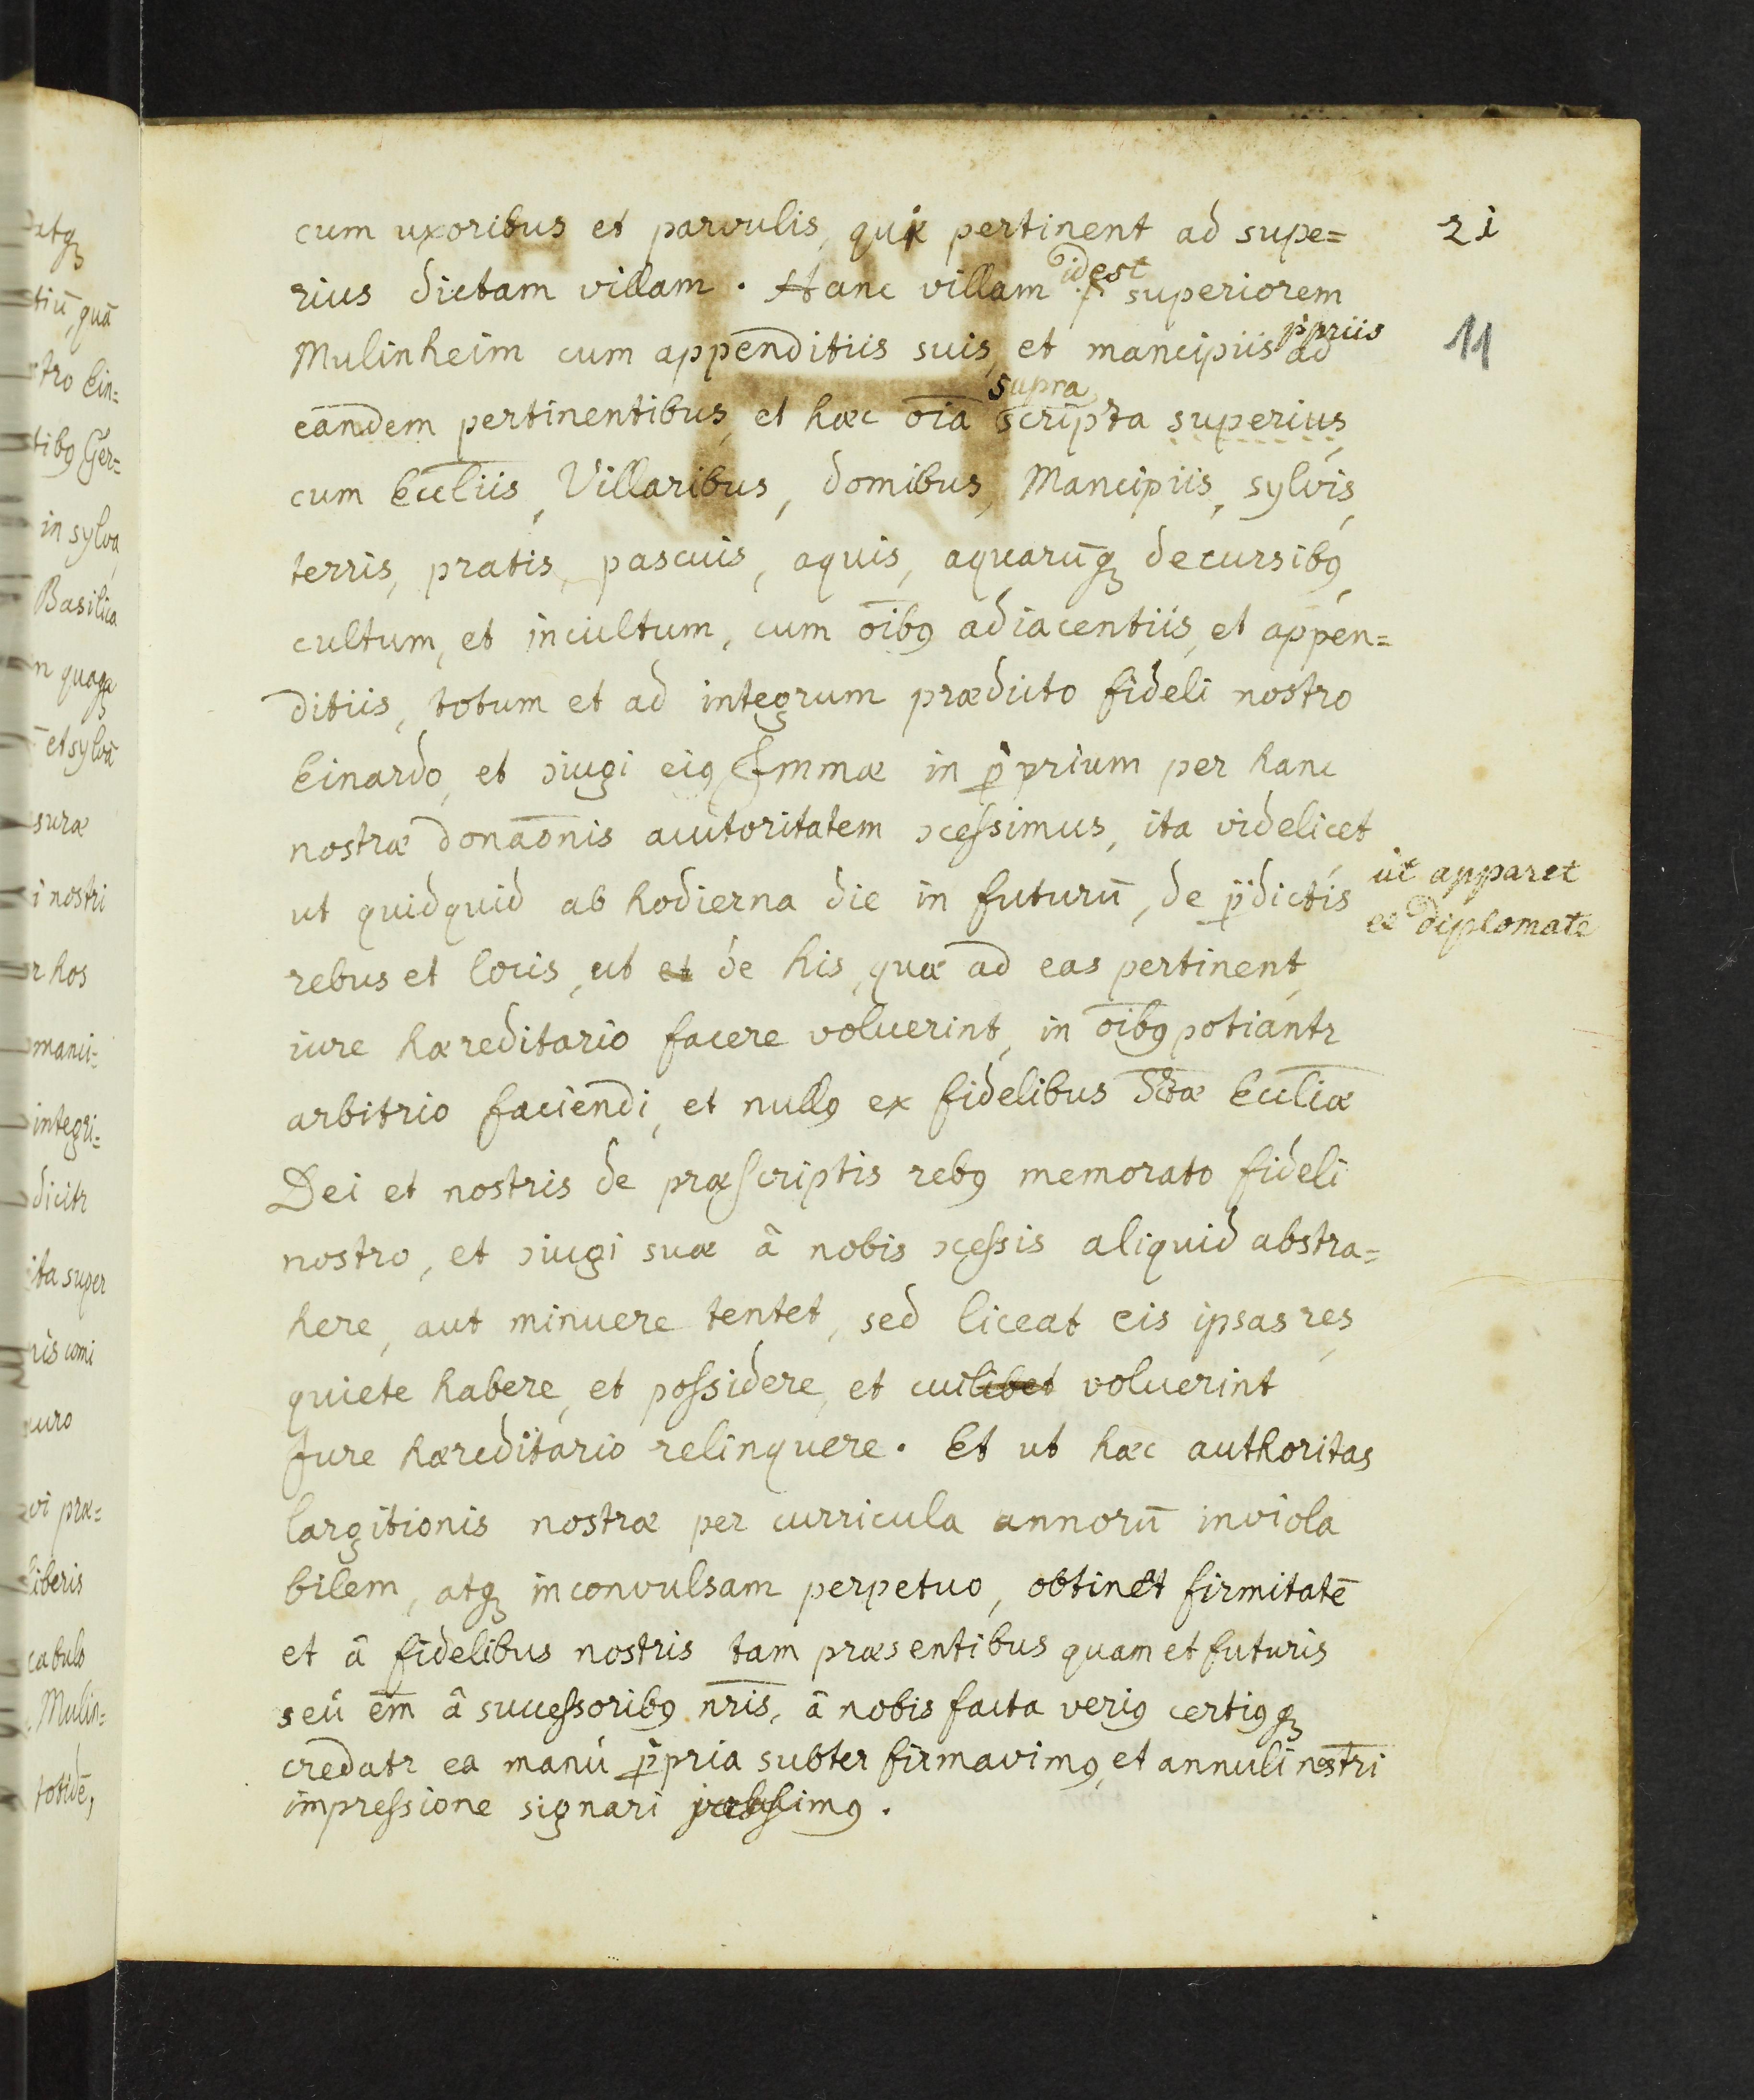 21
11
cum uxoribus et parvulis, qui pertinent ad supe=
rius dictam villam. Hanc villam idest superiorem
Mulinheim cum appenditiis suis, et mancipiis ꝓpriis ad
eandem pertinentibus, et hæc oīa supra scripta superius,
cum Eccl̄iis, Villaribus, domibus, Mancipiis, sylvis,
terris, pratis, pascuis, aquis, aquarūqꝫ decursibꝯ,
cultum, et incultum, cum oībꝯ adiacentiis, et appen=
ditiis, totum et ad integrum prædicto fideli nostro
Einardo, et ↄiugi eiꝯ Emmæ in ꝓprium per hanc
nostræ donaōnis auctoritatem ↄceſsimus, ita videlicet
ut quidquid ab hodierna die in futurū, de p̄dictis
ut apparet
ex diplomate
rebus et locis, ut et de his, quæ ad eas pertinent,
iure hæreditario facere voluerint, in oībꝯ potiantr
arbitrio faciendi, et nullꝯ ex fidelibus Sctæ Eccl̄iæ
Dei et nostris de præſcriptis rebꝯ memorato fideli
nostro, et ↄiugi suæ â nobis ↄceſsis aliquid abstra=
here, aut minuere tentet, sed liceat eis ipsas res,
quiete habere, et poſsidere, et cuilibet voluerint
Jure hæreditario relinquere. Et ut hæc authoritas
largitionis nostræ per curricula annorū inviola
bilem, atqꝫ inconvulsam perpetuo, obtinet firmitatē
et â fidelibus nostris tam præsentibus quam et futuris
seû em̄ â succeſsoribꝯ nr̄is, â nobis facta veriꝯ certiꝯqꝫ
credatr ea manú ꝓpria subter firmavimꝯ, et annuli nostri
impreſsione signari iuſsimꝯ.